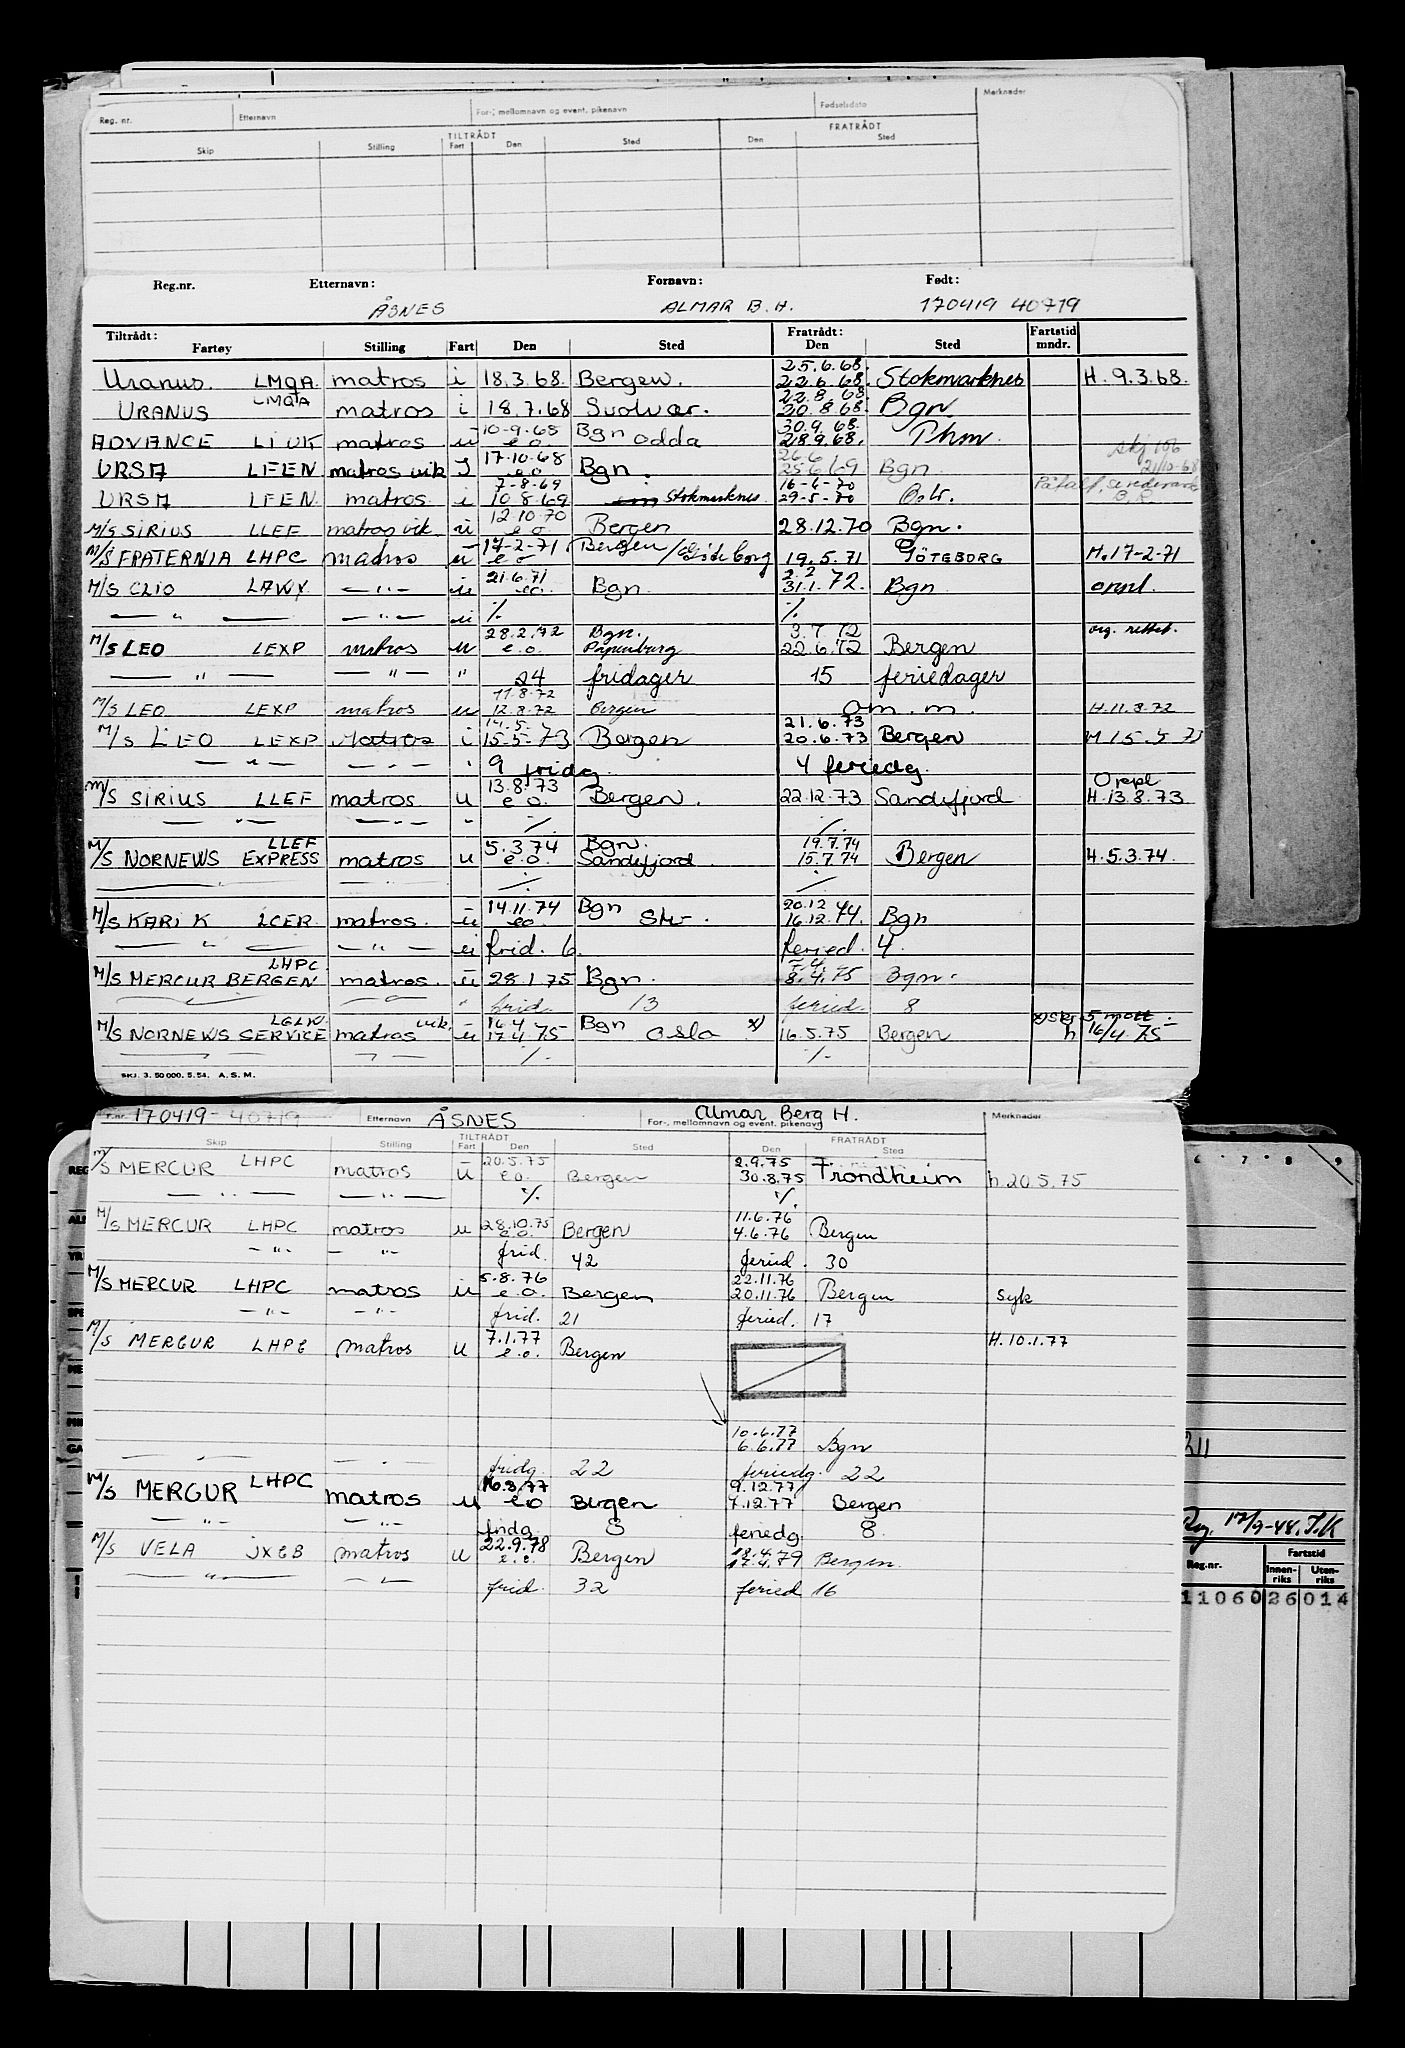 Reg. nr. Etternavn For-, mellomnavn og event. pikenavn Fødselsdato Merknader
TILTRÅDT FRATRÅDT
Skip Stilling Fart Den Sted Den Sted
Reg.nr. Etternavn: Fornavn: Født:
ÅSNES ALMAR B. H. 170419 40719
Tiltrådt: Fratrådt: Fartstid
Fartøy Stilling Fart Den Sted Den Sted mndr.
25.6.68.
Uranus. LMQA matros i 18.3.68. Bergen. 22.6.68. Stokmarknes H. 9.3.68.
LMQA 22.8.68.
URANUS matros i 18.7.68 Svolvær. 20.8.68. Bgn.
10-9-68 Bgn 30.9.68.
ADVANCE LIUK matros u e.o. Odda 28.9.68. Thm.
17-10-68 26.6
URSA LFEN matros vik I e.o. Bgn. 25.6.69 Bgn. 21/10-68
7-8-69 16-6-70
URSA LFEN matros i 10.8.69 Stokmarknes 29-5-70 Oslo.
12.10.70
M/S SIRIUS LLEF matros vik. u e.o. Bergen 28.12.70 Bgn.
17-2-71
M/S FRATERNIA LHPC matros u e o Bergen/Göteborg 19.5.71 GÖTEBORG H. 17-2-71
21.6.71 2.2
M/S CLIO LAWY — " — u e.o. Bgn. 31.1.72. Bgn. oml.
— " — — " — u %. %.
28.2.72 Bgn. 3.7.72 org. rettet.
M/S LEO LEXP matros u e.o. Papenburg 22.6.72 Bergen
— " — — " — " 24 fridager 15 feriedager
11.8.72
M/S LEO LEXP matros u 12.8.72 Bergen om. m. H. 11.8.72
14.5. 21.6.73
M/S LEO LEXP Matros i 15-5-73 Bergen 20.6.73 Bergen H 15.5 73
— " — — " — " 9 fridg. 4 feriedg.
13.8.73
M/S SIRIUS LLEF matros u e.o. Bergen. 22.12.73 Sandefjord H. 13.8.73
— " — — " — " %. %.
LLEF 5.3.74 Bgn. 19.7.74
M/S NORNEWS EXPRESS matros u e.o. Sandefjord. 15.7.74 Bergen H. 5.3.74.
— " — — " — %. %.
14.11.74 Bgn 20.12
M/S KARI K LCER. matros. u eo. 16.12.74. Bgn
— " — — " — u frid. 6. feried. 4.
LHPC. 7.4.
M/S MERCUR BERGEN matros. u 28.1.75 Bgn. 8.4.75 Bgn.
— " — — " — " frid. 13 feried. 8
LGLW. vik. 16.4 Bgn x) skj. 5 mott.
M/S NORNEWS SERVICE matros u 17.4.75 Oslo x) 16.5.75 Bergen h 16/4.75
— " — — " — %. %.
SKJ. 3. 50 000. 5.54. A. S. M.
F.nr. 170419-40719 Etternavn ÅSNES Almar Berg H. Merknader
For-, mellomnavn og event. pikenavn
TILTRÅDT FRATRÅDT
Skip Stilling Fart Den Sted Den Sted
20.5.75 2.9.75
M/S MERCUR LHPC matros u e.o. Bergen 30.8.75 Trondheim h. 20.5.75
— " — — " — %. %.
28.10.75 11.6.76
M/S MERCUR LHPC matros u e.o. Bergen 4.6.76 Bergen
— " — — " — frid. 42 feried. 30
5.8.76 22.11.76
M/S MERCUR LHPC matros u e.o. Bergen 20.11.76 Bergen Syk
— " — — " — frid. 21 feried. 17
7.1.77
M/S MERCUR LHPC matros u e.o. Bergen H. 10.1.77
10.6.77
6.6.77 Bgn
— " — — " — fridg 22 feriedg. 22
9.12.77
M/S MERCUR LHPC matros u e.o Bergen 7.12.77 Bergen
— " — — " — fridg. 8 feriedg. 8.
22.9.78 18.4.79
M/S VELA JXCB matros u e.o. Bergen 17.4.79 Bergen.
— " — — " — frid. 32 feried 16
6 7 8 9
311
Reg. 17/9-48. T.K
Reg.nr. Fartstid
Innen-riks Uten-riks
11060 26 014